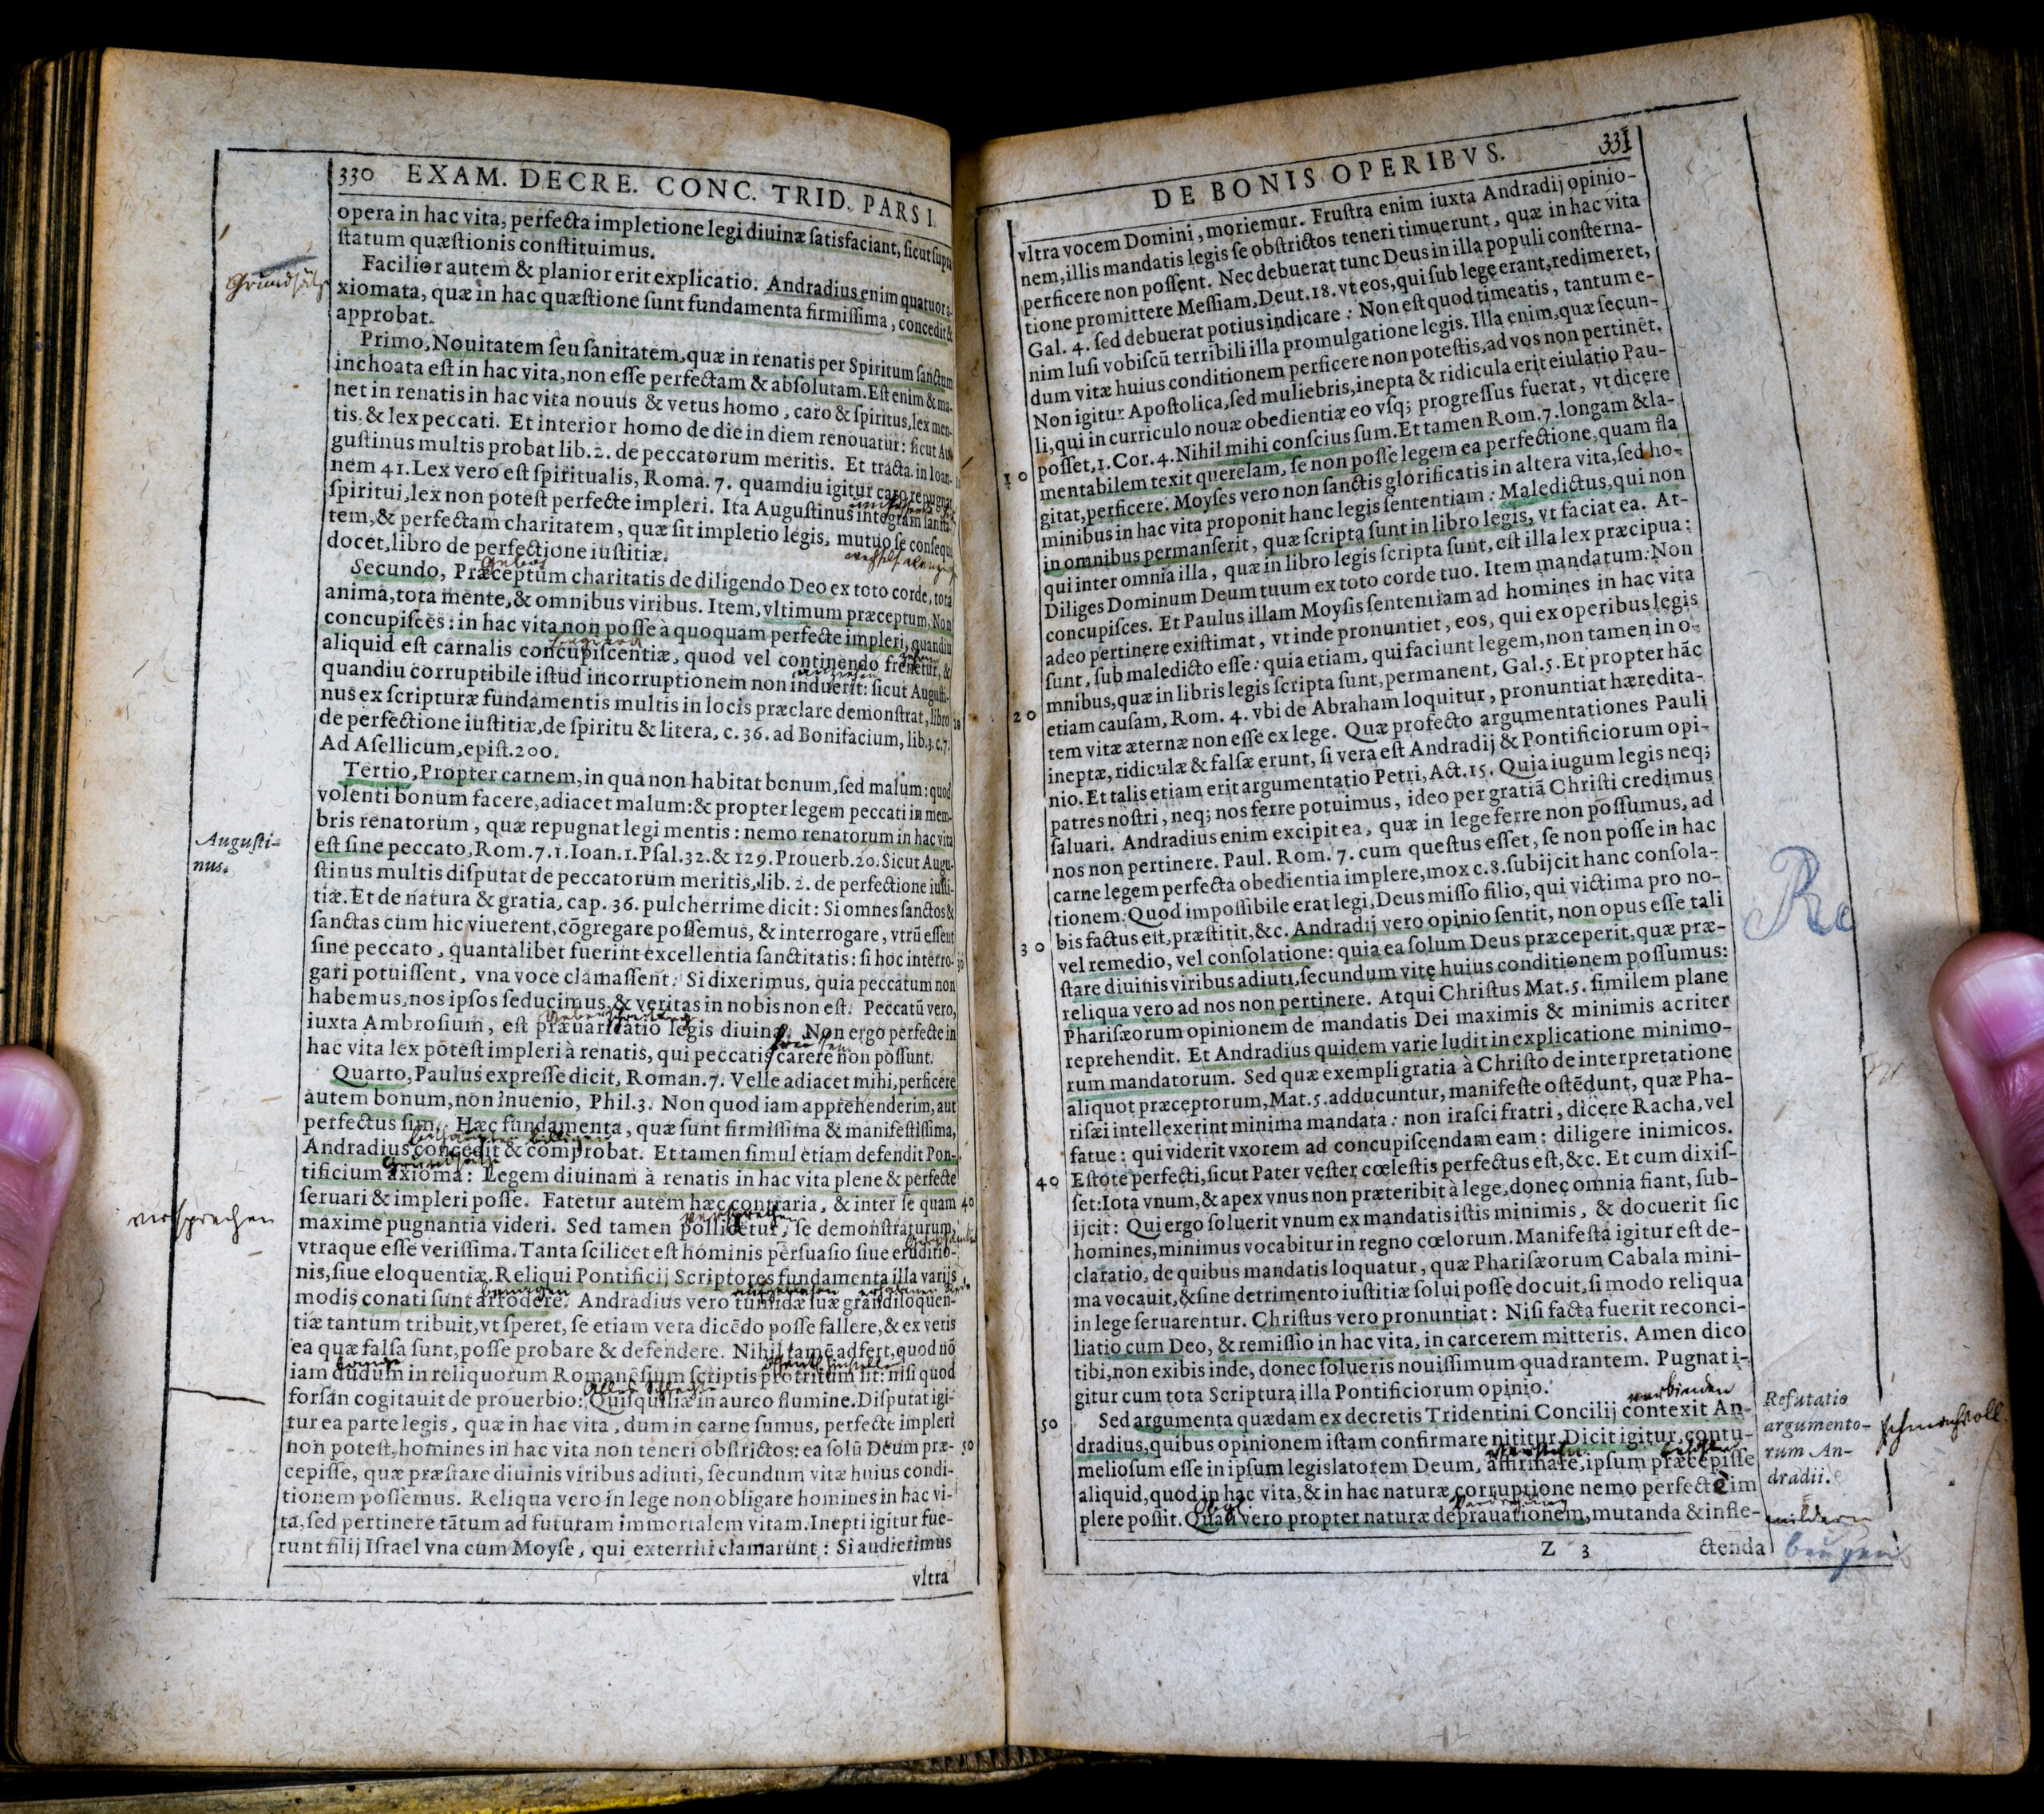 330 EXAM. DECRE. CONC. TRID. PARS I.
opera in hac vita, perfecta impletione legi diuinæ ſatisfaciant, ſicut ſupra
ſtatum quæſtionis conſtituimus.
Facilior autem & planior erit explicatio. Andradius enim quatuor a-
xiomata, quæ in hac quæſtione ſunt fundamenta firmiſſima, concedit &
approbat.
Primo, Nouitatem ſeu ſanitatem, quæ in renatis per Spiritum ſanctum
inchoata eſt in hac vita, non eſſe perfectam & abſolutam. Eſt enim & ma-
net in renatis in hac vita nouus & vetus homo, caro & ſpiritus, lex men-
tis, & lex peccati. Et interior homo de die in diem renouatur: ſicut Au-
guſtinus multis probat lib. 2. de peccatorum meritis. Et tracta. in Ioan-
nem 41. Lex vero eſt ſpiritualis, Roma. 7. quamdiu igitur caro repugnat
ſpiritui, lex non poteſt perfecte impleri. Ita Auguſtinus integram ſanita-
tem, & perfectam charitatem, quæ ſit impletio legis, mutuo ſe conſequi
docet, libro de perfectione iuſtitiæ.
Secundo, Præceptum charitatis de diligendo Deo ex toto corde, tota
anima, tota mente, & omnibus viribus. Item, vltimum præceptum, Non
concupiſces: in hac vita non poſſe à quoquam perfecte impleri, quandiu
aliquid eſt carnalis concupiſcentiæ, quod vel continendo frenetur, &
quandiu corruptibile iſtud incorruptionem non induerit: ſicut Auguſti-
nus ex ſcripturæ fundamentis multis in locis præclare demonſtrat, libro
de perfectione iuſtitiæ, de ſpiritu & litera, c. 36. ad Bonifacium, lib. 3. c. 7.
Ad Aſellicum, epiſt. 200.
Tertio, Propter carnem, in qua non habitat bonum, ſed malum: quod
volenti bonum facere, adiacet malum: & propter legem peccati in mem-
bris renatorum, quæ repugnat legi mentis: nemo renatorum in hac vita
est ſine peccato, Rom. 7. 1. Ioan. 1. Pſal. 32. & 129. Prouerb. 20. Sicut Augu-
ſtinus multis diſputat de peccatorum meritis, lib. 2. de perfectione iuſti-
tiæ. Et de natura & gratia, cap. 36. pulcherrime dicit: Si omnes ſanctos &
ſanctas cum hic viuerent, cōgregare poſſemus, & interrogare, vtrū eſſent
ſine peccato, quantalibet fuerint excellentia ſanctitatis: ſi hoc interro-
gari potuiſſent, vna voce clamaſſent: Si dixerimus, quia peccatum non
habemus, nos ipſos ſeducimus, & veritas in nobis non eſt. Peccatū vero,
iuxta Ambroſium, eſt præuaricatio legis diuinæ. Non ergo perfecte in
hac vita lex poteſt impleri à renatis, qui peccatis carere non poſſunt.
Quarto, Paulus expreſſe dicit, Roman. 7. Velle adiacet mihi, perficere
autem bonum, non inuenio, Phil. 3. Non quod iam apprehenderim, aut
perfectus ſim. Hæc fundamenta, quæ ſunt firmiſſima & manifeſtiſſima,
Andradius concedit & comprobat. Et tamen ſimul etiam defendit Pon-
tificium axioma: Legem diuinam à renatis in hac vita plene & perfecte
ſeruari & impleri poſſe. Fatetur autem hæc contraria, & inter ſe quam
maxime pugnantia videri. Sed tamen pollicetur, ſe demonſtraturum,
vtraque eſſe veriſſima. Tanta ſcilicet eſt hominis perſuaſio ſiue eruditio-
nis, ſiue eloquentiæ. Reliqui Pontificij Scriptores fundamenta illa varijs
modis conati ſunt arrodere. Andradius vero tumidæ ſuæ grandiloquen-
tiæ tantum tribuit, vt ſperet, ſe etiam vera dicēdo poſſe fallere, & ex veris
ea quæ falſa ſunt, poſſe probare & defendere. Nihil tamē adfert, quod nō
iam dudum in reliquorum Romanēſium ſcriptis protritum ſit: niſi quod
forſan cogitauit de prouerbio: Quiſquiliæ in aureo flumine. Diſputat igi-
tur ea parte legis, quæ in hac vita, dum in carne ſumus, perfecte impleri
non poteſt, homines in hac vita non teneri obſtrictos: ea ſolū Deum præ-
cepiſſe, quæ præſtare diuinis viribus adiuti, ſecundum vitæ huius condi-
tionem poſſemus. Reliqua vero in lege non obligare homines in hac vi-
ta, ſed pertinere tātum ad futuram immortalem vitam. Inepti igitur fue-
runt filij Iſrael vna cum Moyſe, qui exterriti clamarunt: Si audierimus
vltra
Grundsätze
Auguſti-
nus.
versprechen
40
50
DE BONIS OPERIBVS. 331
vltra vocem Domini, moriemur. Fruſtra enim iuxta Andradij opinio-
nem, illis mandatis legis ſe obſtrictos teneri timuerunt, quæ in hac vita
perficere non poſſent. Nec debuerat tunc Deus in illa populi conſterna-
tione promittere Meſſiam, Deut. 18. vt eos, qui ſub lege erant, redimeret,
Gal. 4. ſed debuerat potius indicare: Non eſt quod timeatis, tantum e-
nim luſi vobiſcū terribili illa promulgatione legis. Illa enim, quæ ſecun-
dum vitæ huius conditionem perficere non poteſtis, ad vos non pertinēt.
Non igitur Apoſtolica, ſed muliebris, inepta & ridicula erit eiulatio Pau-
li, qui in curriculo nouæ obedientiæ eo vſq; progreſſus fuerat, vt dicere
poſſet, 1. Cor. 4. Nihil mihi conſcius ſum. Et tamen Rom. 7. longam & la-
mentabilem texit querelam, ſe non poſſe legem ea perfectione, quam fla
gitat, perficere. Moyſes vero non ſanctis glorificatis in altera vita, ſed ho-
minibus in hac vita proponit hanc legis ſententiam: Maledictus, qui non
in omnibus permanſerit, quæ ſcripta ſunt in libro legis, vt faciat ea. At-
qui inter omnia illa, quæ in libro legis ſcripta ſunt, eſt illa lex præcipua:
Diliges Dominum Deum tuum ex toto corde tuo. Item mandatum: Non
concupiſces. Et Paulus illam Moyſis ſententiam ad homines in hac vita
adeo pertinere exiſtimat, vt inde pronuntiet, eos, qui ex operibus legis
ſunt, ſub maledicto eſſe: quia etiam, qui faciunt legem, non tamen in o-
mnibus, quæ in libris legis ſcripta ſunt, permanent, Gal. 5. Et propter hāc
etiam cauſam, Rom. 4. vbi de Abraham loquitur, pronuntiat hæredita-
tem vitæ æternæ non eſſe ex lege. Quæ profecto argumentationes Pauli
ineptæ, ridiculæ & falſæ erunt, ſi vera eſt Andradij & Pontificiorum opi-
nio. Et talis etiam erit argumentatio Petri, Act. 15. Quia iugum legis neq;
patres noſtri, neq; nos ferre potuimus, ideo per gratiā Chriſti credimus
ſaluari. Andradius enim excipit ea, quæ in lege ferre non poſſumus, ad
nos non pertinere. Paul. Rom. 7. cum queſtus eſſet, ſe non poſſe in hac
carne legem perfecta obedientia implere, mox c. 8. ſubijcit hanc conſola-
tionem: Quod impoſſibile erat legi, Deus miſſo filio, qui victima pro no-
bis factus eſt, præſtitit, &c. Andradij vero opinio ſentit, non opus eſſe tali
vel remedio, vel conſolatione: quia ea ſolum Deus præceperit, quæ præ-
ſtare diuinis viribus adiuti, ſecundum vitę huius conditionem poſſumus:
reliqua vero ad nos non pertinere. Atqui Chriſtus Mat. 5. ſimilem plane
Phariſæorum opinionem de mandatis Dei maximis & minimis acriter
reprehendit. Et Andradius quidem varie ludit in explicatione minimo-
rum mandatorum. Sed quæ exempli gratia à Chriſto de interpretatione
aliquot præceptorum, Mat. 5. adducuntur, manifeſte oſtēdunt, quæ Pha-
riſæi intellexerint minima mandata: non iraſci fratri, dicere Racha, vel
fatue: qui viderit vxorem ad concupiſcendam eam: diligere inimicos.
Eſtote perfecti, ſicut Pater veſter cœleſtis perfectus eſt, &c. Et cum dixiſ-
ſet: Iota vnum, & apex vnus non præteribit à lege, donec omnia fiant, ſub-
ijcit: Qui ergo ſoluerit vnum ex mandatis iſtis minimis, & docuerit ſic
homines, minimus vocabitur in regno cœlorum. Manifeſta igitur eſt de-
claratio, de quibus mandatis loquatur, quæ Phariſæorum Cabala mini-
ma vocauit, & ſine detrimento iuſtitiæ ſolui poſſe docuit, ſi modo reliqua
in lege ſeruarentur. Chriſtus vero pronuntiat: Niſi facta fuerit reconci-
liatio cum Deo, & remiſſio in hac vita, in carcerem mitteris. Amen dico
tibi, non exibis inde, donec ſolueris nouiſſimum quadrantem. Pugnat i-
gitur cum tota Scriptura illa Pontificiorum opinio.
Sed argumenta quædam ex decretis Tridentini Concilij contexit An-
dradius, quibus opinionem iſtam confirmare nititur. Dicit igitur, contu-
melioſum eſſe in ipſum legislatorem Deum, affirmare, ipſum præcepiſſe
aliquid, quod in hac vita, & in hac naturæ corruptione nemo perfecte im
plere poſſit. Quaſi vero propter naturæ deprauationem, mutanda & infle-
Z 3 ctenda
10
20
30
40
50
verbinden
Refutatio
argumento-
rum An-
dradii.
schmachvoll
mildern
beugen